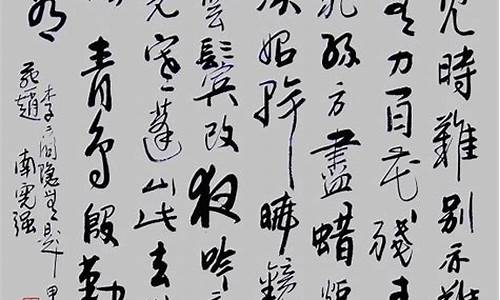 見時難別亦難
無力百花殘春
死絲方盡蠟炬
淚始幹曉鏡
雲鬢改夜吟
光寒蓬山此去
青鳥殷勤
李商隱無題
燕趙 南憲强